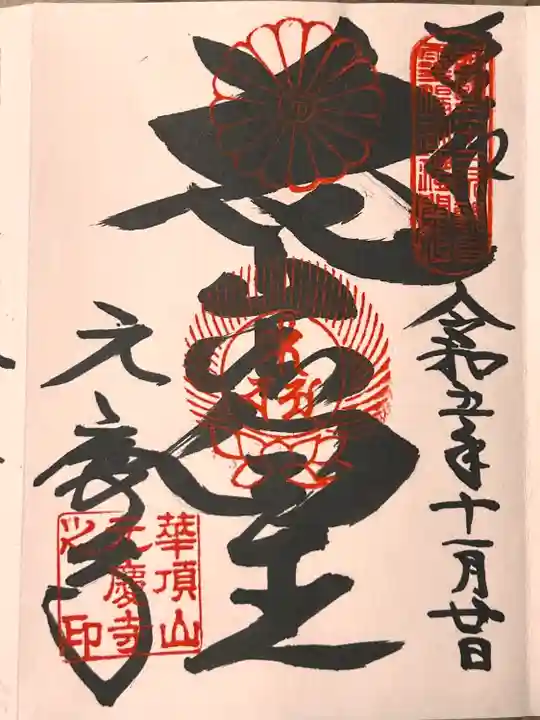 奉拝
令和五年十一月廿日
花山法皇
元慶寺
華頂山
元慶寺
之印